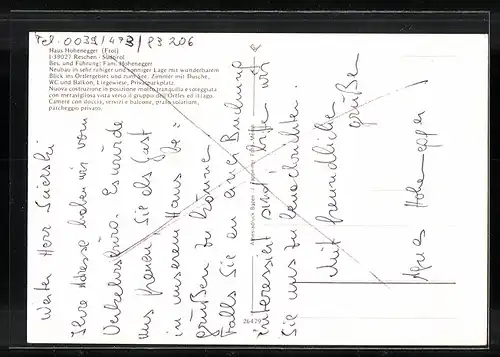 Tel. 0039/473/83206
Haus Hohenegger (Froi)
I-39027 Reschen - Südtirol
Bes. und Führung: Fam. Hohenegger
Neubau in sehr ruhiger und sonniger Lage mit wunderbarem
Blick ins Ortlergebiet und zum See. Zimmer mit Dusche,
WC und Balkon, Liegewiese, Privatparkplatz.
Nuova costruzione in posizione molto tranquilla e soreggiata
con meravigliosa vista verso il gruppo dell'Ortles ed il lago.
Camere con doccia, servizi e balcone, prato solarium,
parcheggio privato.
Werter Herr
Ihre Adresse haben wir vom
Verkehrsbüro. Es würde
uns freuen, Sie als Gast
in unserem Haus be=
grüßen zu können.
Falls Sie an einer Buchung
interessiert sind, bitte wir
Sie uns zu benachrichten.
Mit freundlichen
Grüßen
Agnes Hohenegger
26479